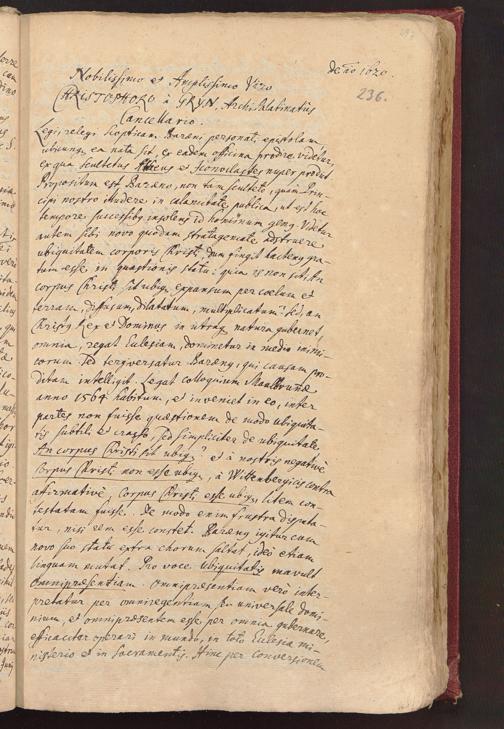 de aō 1620.
236.
Nobilissimo et Amplissimo Viro
CHRISTOPHORO à GRYN, Archi-Palatinatus
Cancellario.
Legi, relegi scopticam Bazeni personati epistolam
ubicunq, ea nata sit, ex eadem officina prodire videtur,
ex qua Scultetus Atticus et Iconoclastes nuper prodiit
Propositum est Bazeno, non tam Sculteto, quam Prin-
cipi nostro illudere in calamitate publica, ut est hoc
tempore successibus insolens id hominum genus. Videtur
autem sibi novo quodam stratagemate adstruere
ubiquitatem corporis Christi, dum fingit hactenus gra-
tum esse in quaestionis statu: quia is non sit: An
corpus Christi sit ubiq, expansum per coelum et
terram, diffusum, dilatatum, multiplicatum? sed, an
Christus Rex et Dominus in utraq, natura gubernet
omnia, regat Ecclesiam, dominetur in medio inimi-
corum. Sed tergiversatur Bazenus, qui causam pro-
ditam intelligit. Legat colloquium Maulbrunnae
anno 1564 habitum, et inveniet in eo, inter
partes non fuisse quaestionem de modo ubiquita-
tis subtili et crasso, sed simpliciter de ubiquitate.
An corpus Christi sit ubiq,? et à nostris negative
Corpus Christi non esse ubiq, à Wittenbergicis contra
afirmativè, Corpus Christi esse ubiq, litem con-
testatam fuisse. De modo enim frustra disputa-
tur, nisi rem esse constet. Bazenus igitur cum
novo suo statu extra chorum saltat, ideò etiam
linguam mutat. Pro voce Ubiquitatis mavult
Omnipraesentiam. Omnipraesentiam verò inter-
pretatur per omniregentiam seu universale domi-
nium, et omnipraesentem esse, per omnia gubernare,
efficaciter operari in mundo, in toto Ecclesia mi-
nisterio et in Sacramentis. Hinc per conversionem